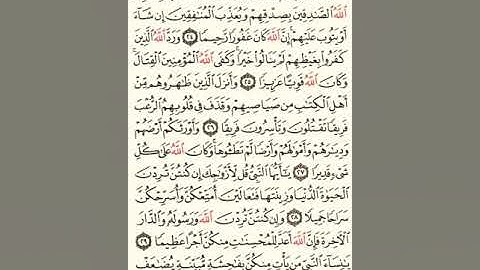 ٱللَّهُ ٱلصَّٰدِقِينَ بِصِدْقِهِمْ وَيُعَذِّبَ ٱلْمُنَٰفِقِينَ إِن شَآءَ
أَوْ يَتُوبَ عَلَيْهِمْ إِنَّ ٱللَّهَ كَانَ غَفُورًا رَّحِيمًا ٢٤ وَرَدَّ ٱللَّهُ ٱلَّذِينَ
كَفَرُوا۟ بِغَيْظِهِمْ لَمْ يَنَالُوا۟ خَيْرًا وَكَفَى ٱللَّهُ ٱلْمُؤْمِنِينَ ٱلْقِتَالَ
وَكَانَ ٱللَّهُ قَوِيًّا عَزِيزًا ٢٥ وَأَنزَلَ ٱلَّذِينَ ظَٰهَرُوهُم مِّنْ
أَهْلِ ٱلْكِتَٰبِ مِن صَيَاصِيهِمْ وَقَذَفَ فِى قُلُوبِهِمُ ٱلرُّعْبَ
فَرِيقًا تَقْتُلُونَ وَتَأْسِرُونَ فَرِيقًا ٢٦ وَأَوْرَثَكُمْ أَرْضَهُمْ
وَدِيَٰرَهُمْ وَأَمْوَٰلَهُمْ وَأَرْضًا لَّمْ تَطَـُٔوهَا وَكَانَ ٱللَّهُ عَلَىٰ كُلِّ
شَىْءٍ قَدِيرًا ٢٧ يَٰٓأَيُّهَا ٱلنَّبِىُّ قُل لِّأَزْوَٰجِكَ إِن كُنتُنَّ تُرِدْنَ
ٱلْحَيَوٰةَ ٱلدُّنْيَا وَزِينَتَهَا فَتَعَالَيْنَ أُمَتِّعْكُنَّ وَأُسَرِّحْكُنَّ
سَرَاحًا جَمِيلًا ٢٨ وَإِن كُنتُنَّ تُرِدْنَ ٱللَّهَ وَرَسُولَهُۥ وَٱلدَّارَ
ٱلْءَاخِرَةَ فَإِنَّ ٱللَّهَ أَعَدَّ لِلْمُحْسِنَٰتِ مِنكُنَّ أَجْرًا عَظِيمًا ٢٩
يَٰنِسَآءَ ٱلنَّبِىِّ مَن يَأْتِ مِنكُنَّ بِفَٰحِشَةٍ مُّبَيِّنَةٍ يُضَٰعَفْ